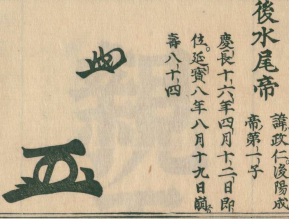 後水尾帝
諱政仁後陽成
帝第一子
慶長十六年四月十二日即
位延寳八年八月十九日崩
壽八十四